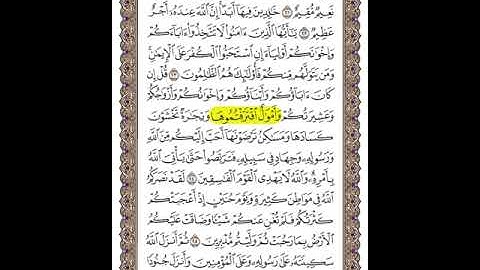 نَعِيمٌ مُّقِيمٌ ٢١ خَالِدِينَ فِيهَا أَبَدًا إِنَّ اللَّهَ عِندَهُ أَجْرٌ
عَظِيمٌ ٢٢ يَا أَيُّهَا الَّذِينَ ءَامَنُوا لَا تَتَّخِذُوا ءَابَاءَكُمْ
وَإِخْوَانَكُمْ أَوْلِيَاءَ إِنِ اسْتَحَبُّوا الْكُفْرَ عَلَى الْإِيمَٰنِ
وَمَن يَتَوَلَّهُم مِّنكُمْ فَأُولَٰئِكَ هُمُ الظَّٰلِمُونَ ٢٣ قُلْ إِن
كَانَ ءَابَاؤُكُمْ وَأَبْنَاؤُكُمْ وَإِخْوَانُكُمْ وَأَزْوَاجُكُمْ
وَعَشِيرَتُكُمْ وَأَمْوَالٌ اقْتَرَفْتُمُوهَا وَتِجَارَةٌ تَخْشَوْنَ
كَسَادَهَا وَمَسَٰكِنُ تَرْضَوْنَهَا أَحَبَّ إِلَيْكُم مِّنَ اللَّهِ
وَرَسُولِهِ وَجِهَادٍ فِي سَبِيلِهِ فَتَرَبَّصُوا حَتَّىٰ يَأْتِيَ اللَّهُ
بِأَمْرِهِ وَاللَّهُ لَا يَهْدِي الْقَوْمَ الْفَٰسِقِينَ ٢٤ لَقَدْ نَصَرَكُمُ
اللَّهُ فِي مَوَاطِنَ كَثِيرَةٍ وَيَوْمَ حُنَيْنٍ إِذْ أَعْجَبَتْكُمْ
كَثْرَتُكُمْ فَلَمْ تُغْنِ عَنكُمْ شَيْئًا وَضَاقَتْ عَلَيْكُمُ
الْأَرْضُ بِمَا رَحُبَتْ ثُمَّ وَلَّيْتُم مُّدْبِرِينَ ٢٥ ثُمَّ أَنزَلَ اللَّهُ
سَكِينَتَهُ عَلَىٰ رَسُولِهِ وَعَلَى الْمُؤْمِنِينَ وَأَنزَلَ جُنُودًا